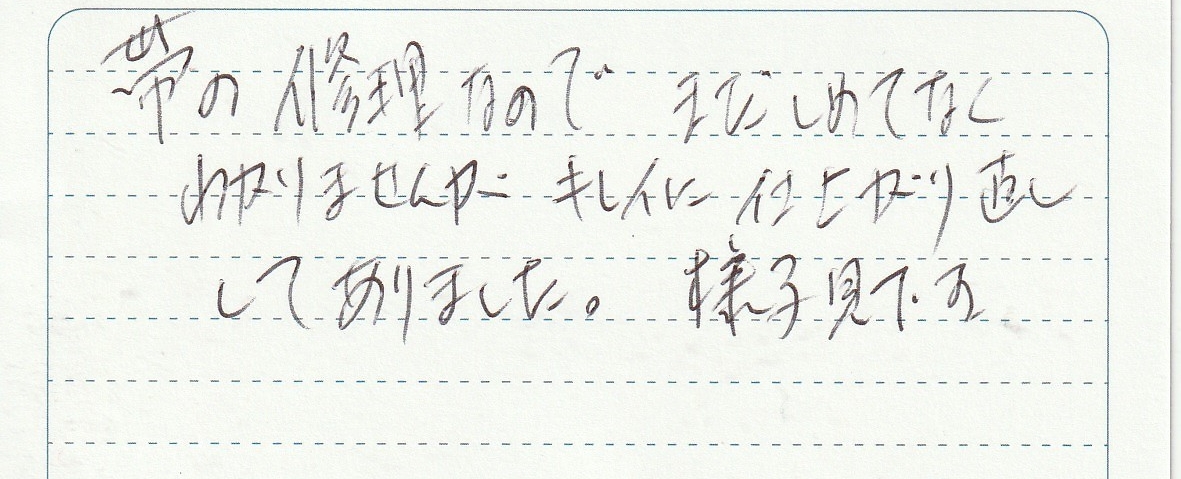 帯の修理なので まだしめてなく
わかりませんが キレイに仕上がり直し
してありました。 様子見です